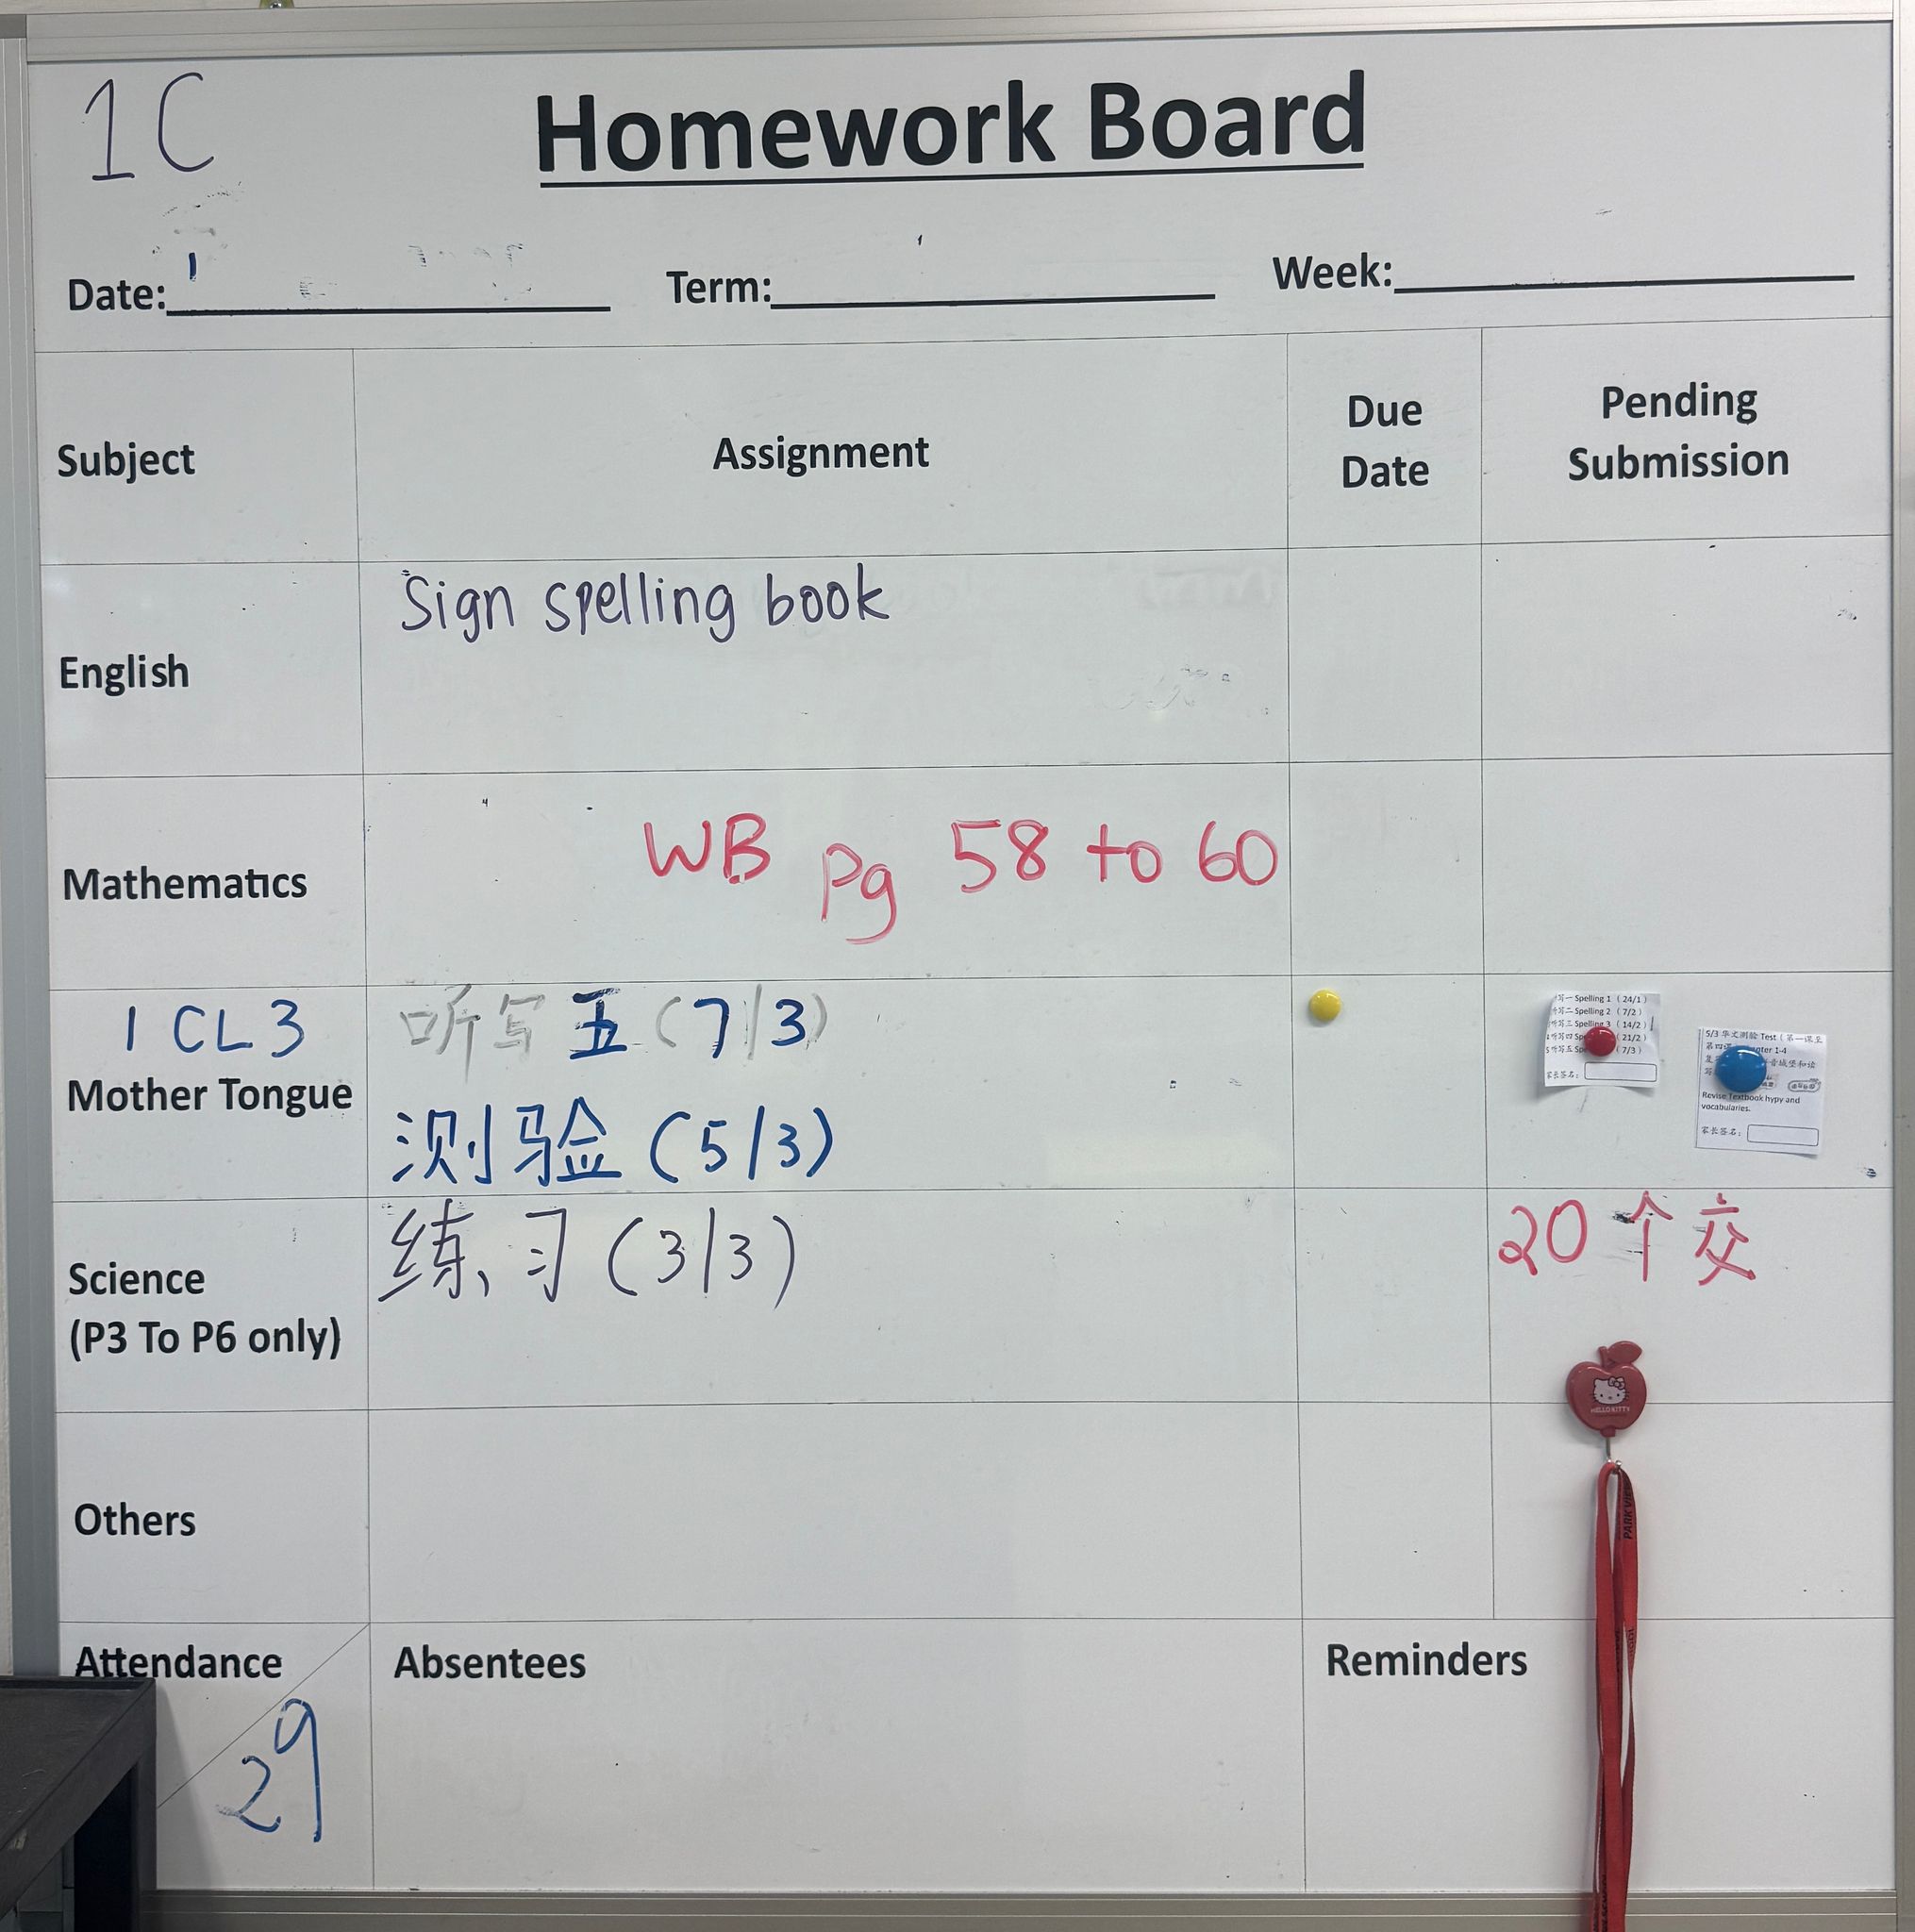 1C
Homework Board
Date: Term: Week:
Subject Assignment Due Date Pending Submission
English Sign spelling book
Mathematics WB pg 58 to 60
1 CL 3
Mother Tongue
听写五 (7/3)
测验 (5/3)
写一 Spelling 1 ( 24/1 )
听写二 Spelling 2 ( 7/2 )
听写三 Spelling 3 ( 14/2 )
听写四 ( 21/2 )
5 听写五 ( 7/3 )
家长签名:
5/3 华文测验 Test ( 第一课至
第四课 1-4
音城堡和读
Revise Textbook hypy and
vocabularies.
家长签名:
Science
(P3 To P6 only)
练习 (3/3)
20个交
HELLO KITTY
Others
PARK VIEW
Attendance Absentees Reminders
29